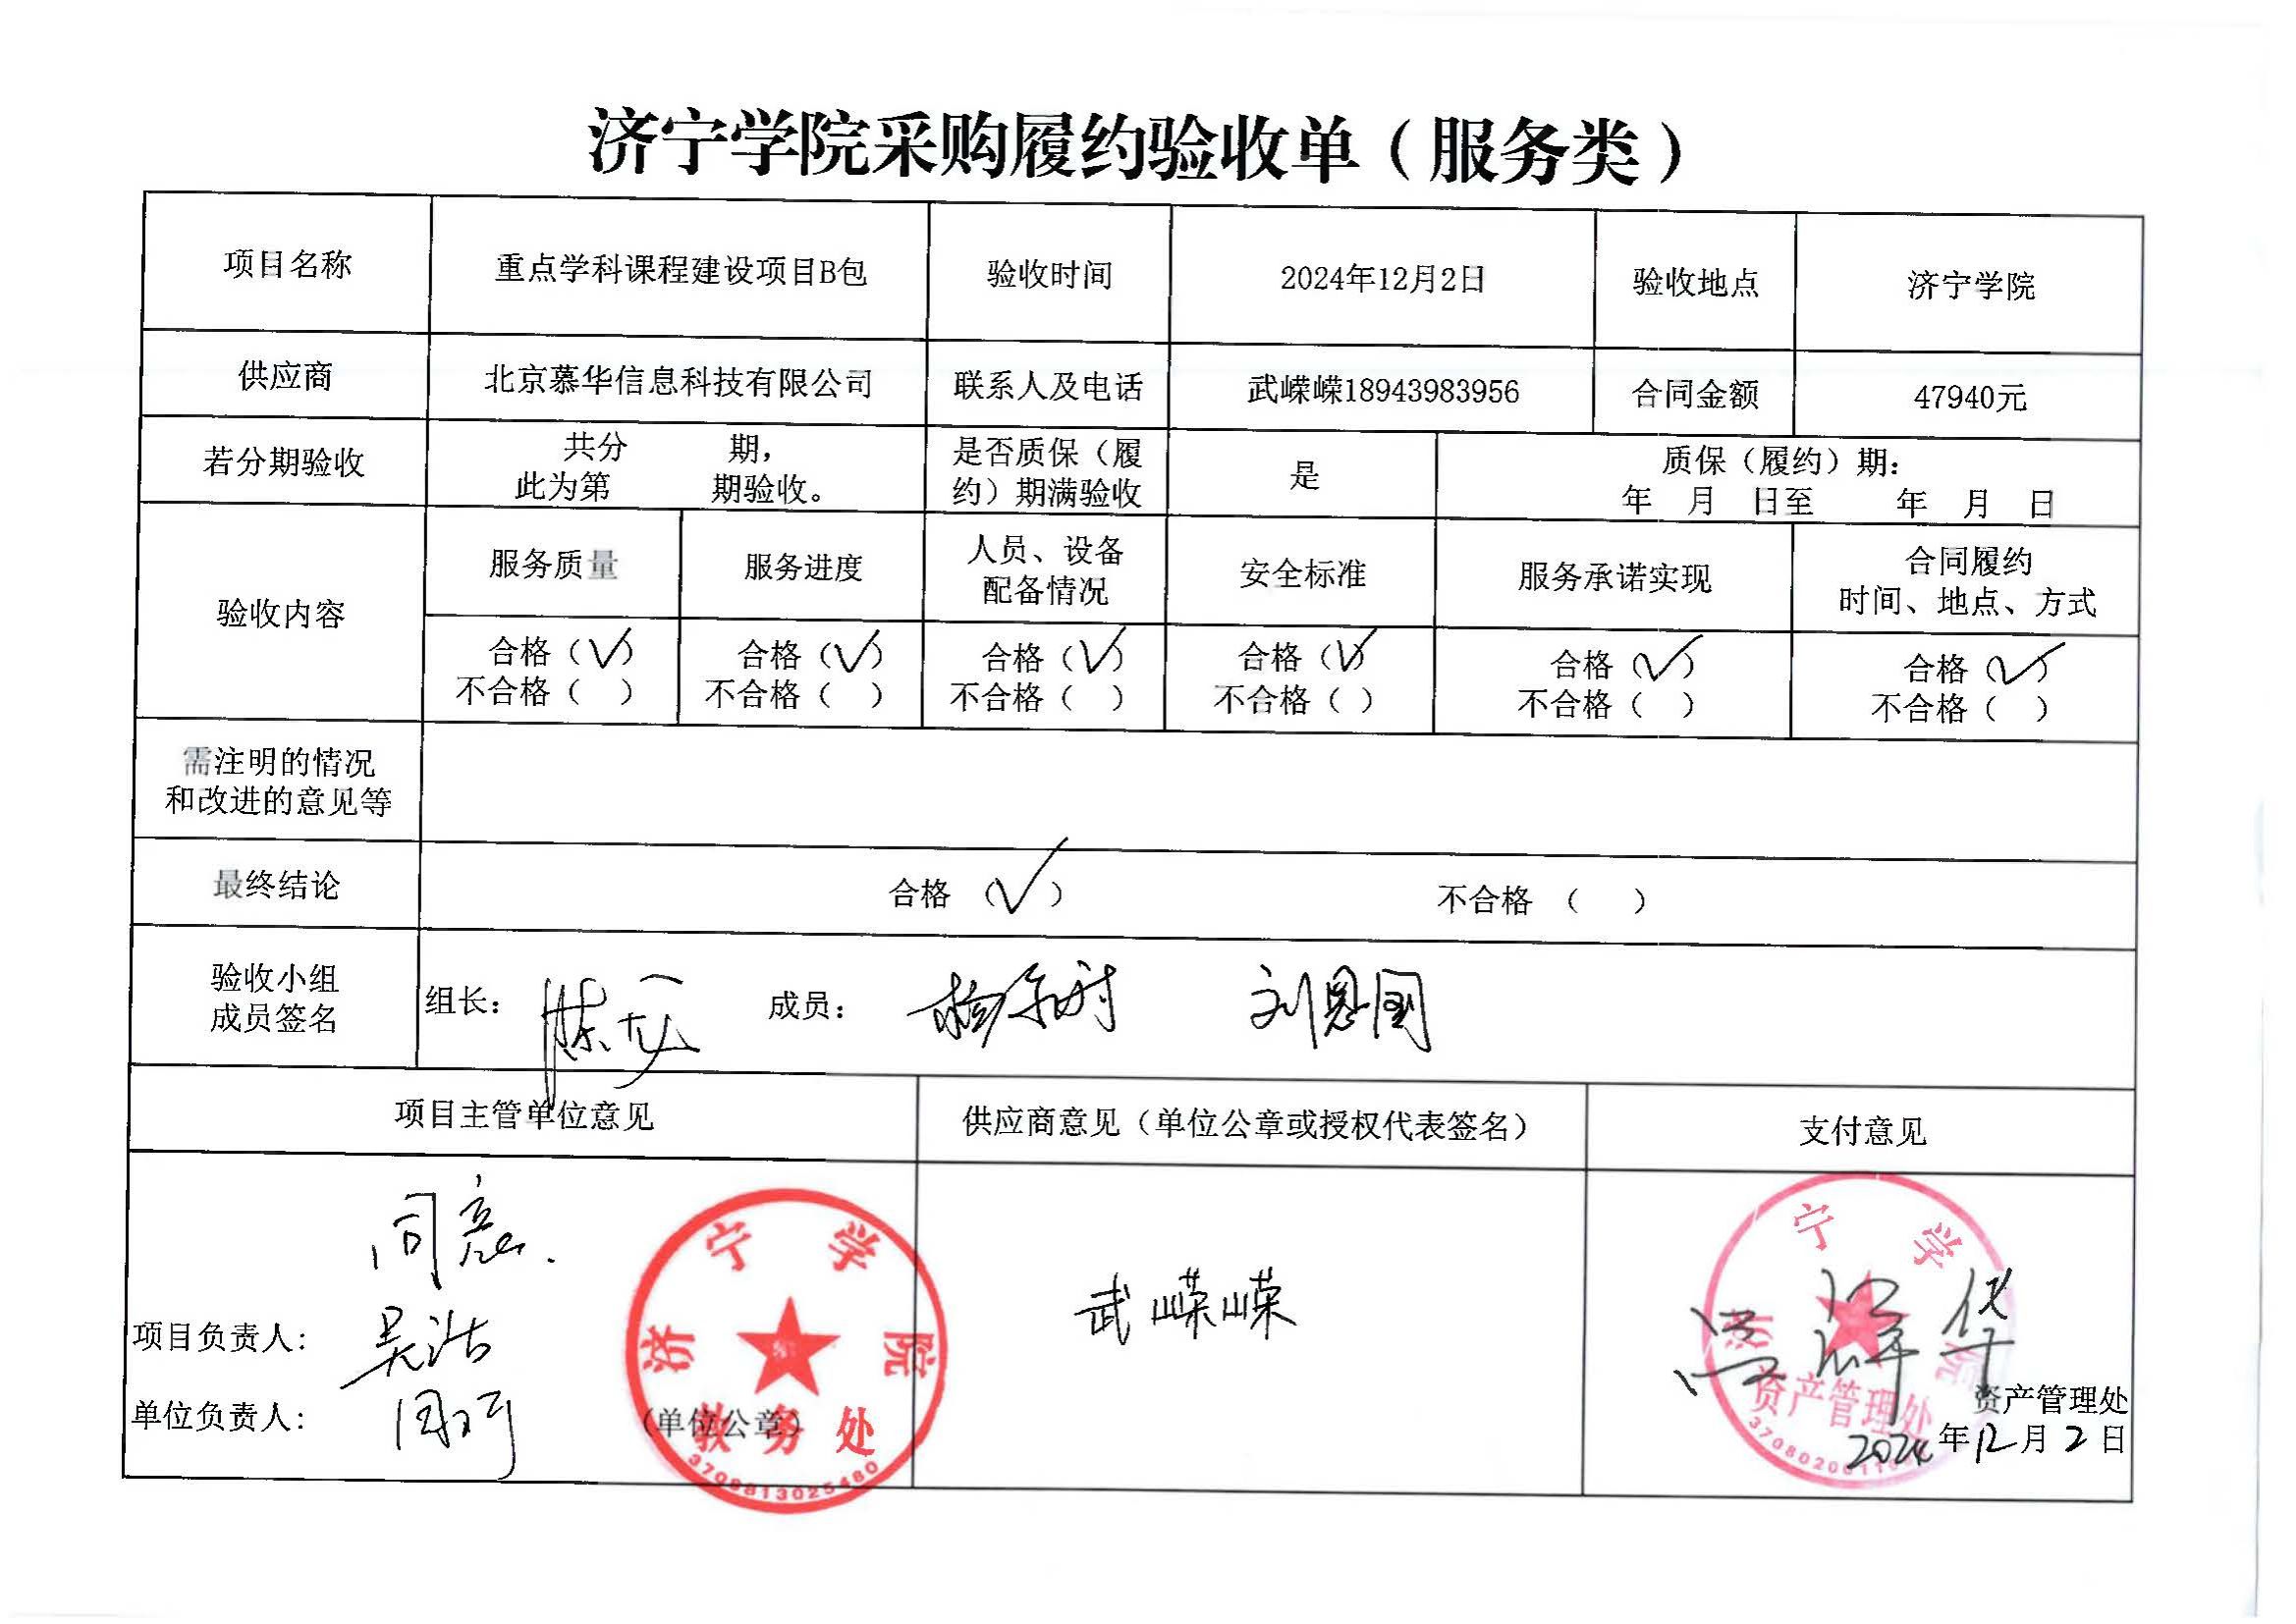 济宁学院采购履约验收单（服务类）
项目名称 重点学科课程建设项目B包 验收时间 2024年12月2日 验收地点 济宁学院
供应商 北京慕华信息科技有限公司 联系人及电话 武嵘嵘18943983956 合同金额 47940元
若分期验收 共分 期，
此为第 期验收。
是否质保（履
约）期满验收
是
质保（履约）期：
年 月 日至 年 月 日
验收内容
服务质量 服务进度 人员、设备
配备情况
安全标准 服务承诺实现 合同履约
时间、地点、方式
合格（√） 合格（√） 合格（√） 合格（√） 合格（√） 合格（√）
不合格（ ） 不合格（ ） 不合格（ ） 不合格（ ） 不合格（ ） 不合格（ ）
需注明的情况
和改进的意见等
最终结论 合格（√） 不合格（ ）
验收小组
成员签名
组长： 成员： 刘恩国
项目主管单位意见 供应商意见（单位公章或授权代表签名） 支付意见
同意.
项目负责人： 吴洁
单位负责人：
（单位公章）
济宁学院
教务处
3708813025480
武嵘嵘
济宁学院
资产管理处
资产管理处
2024年12月2日